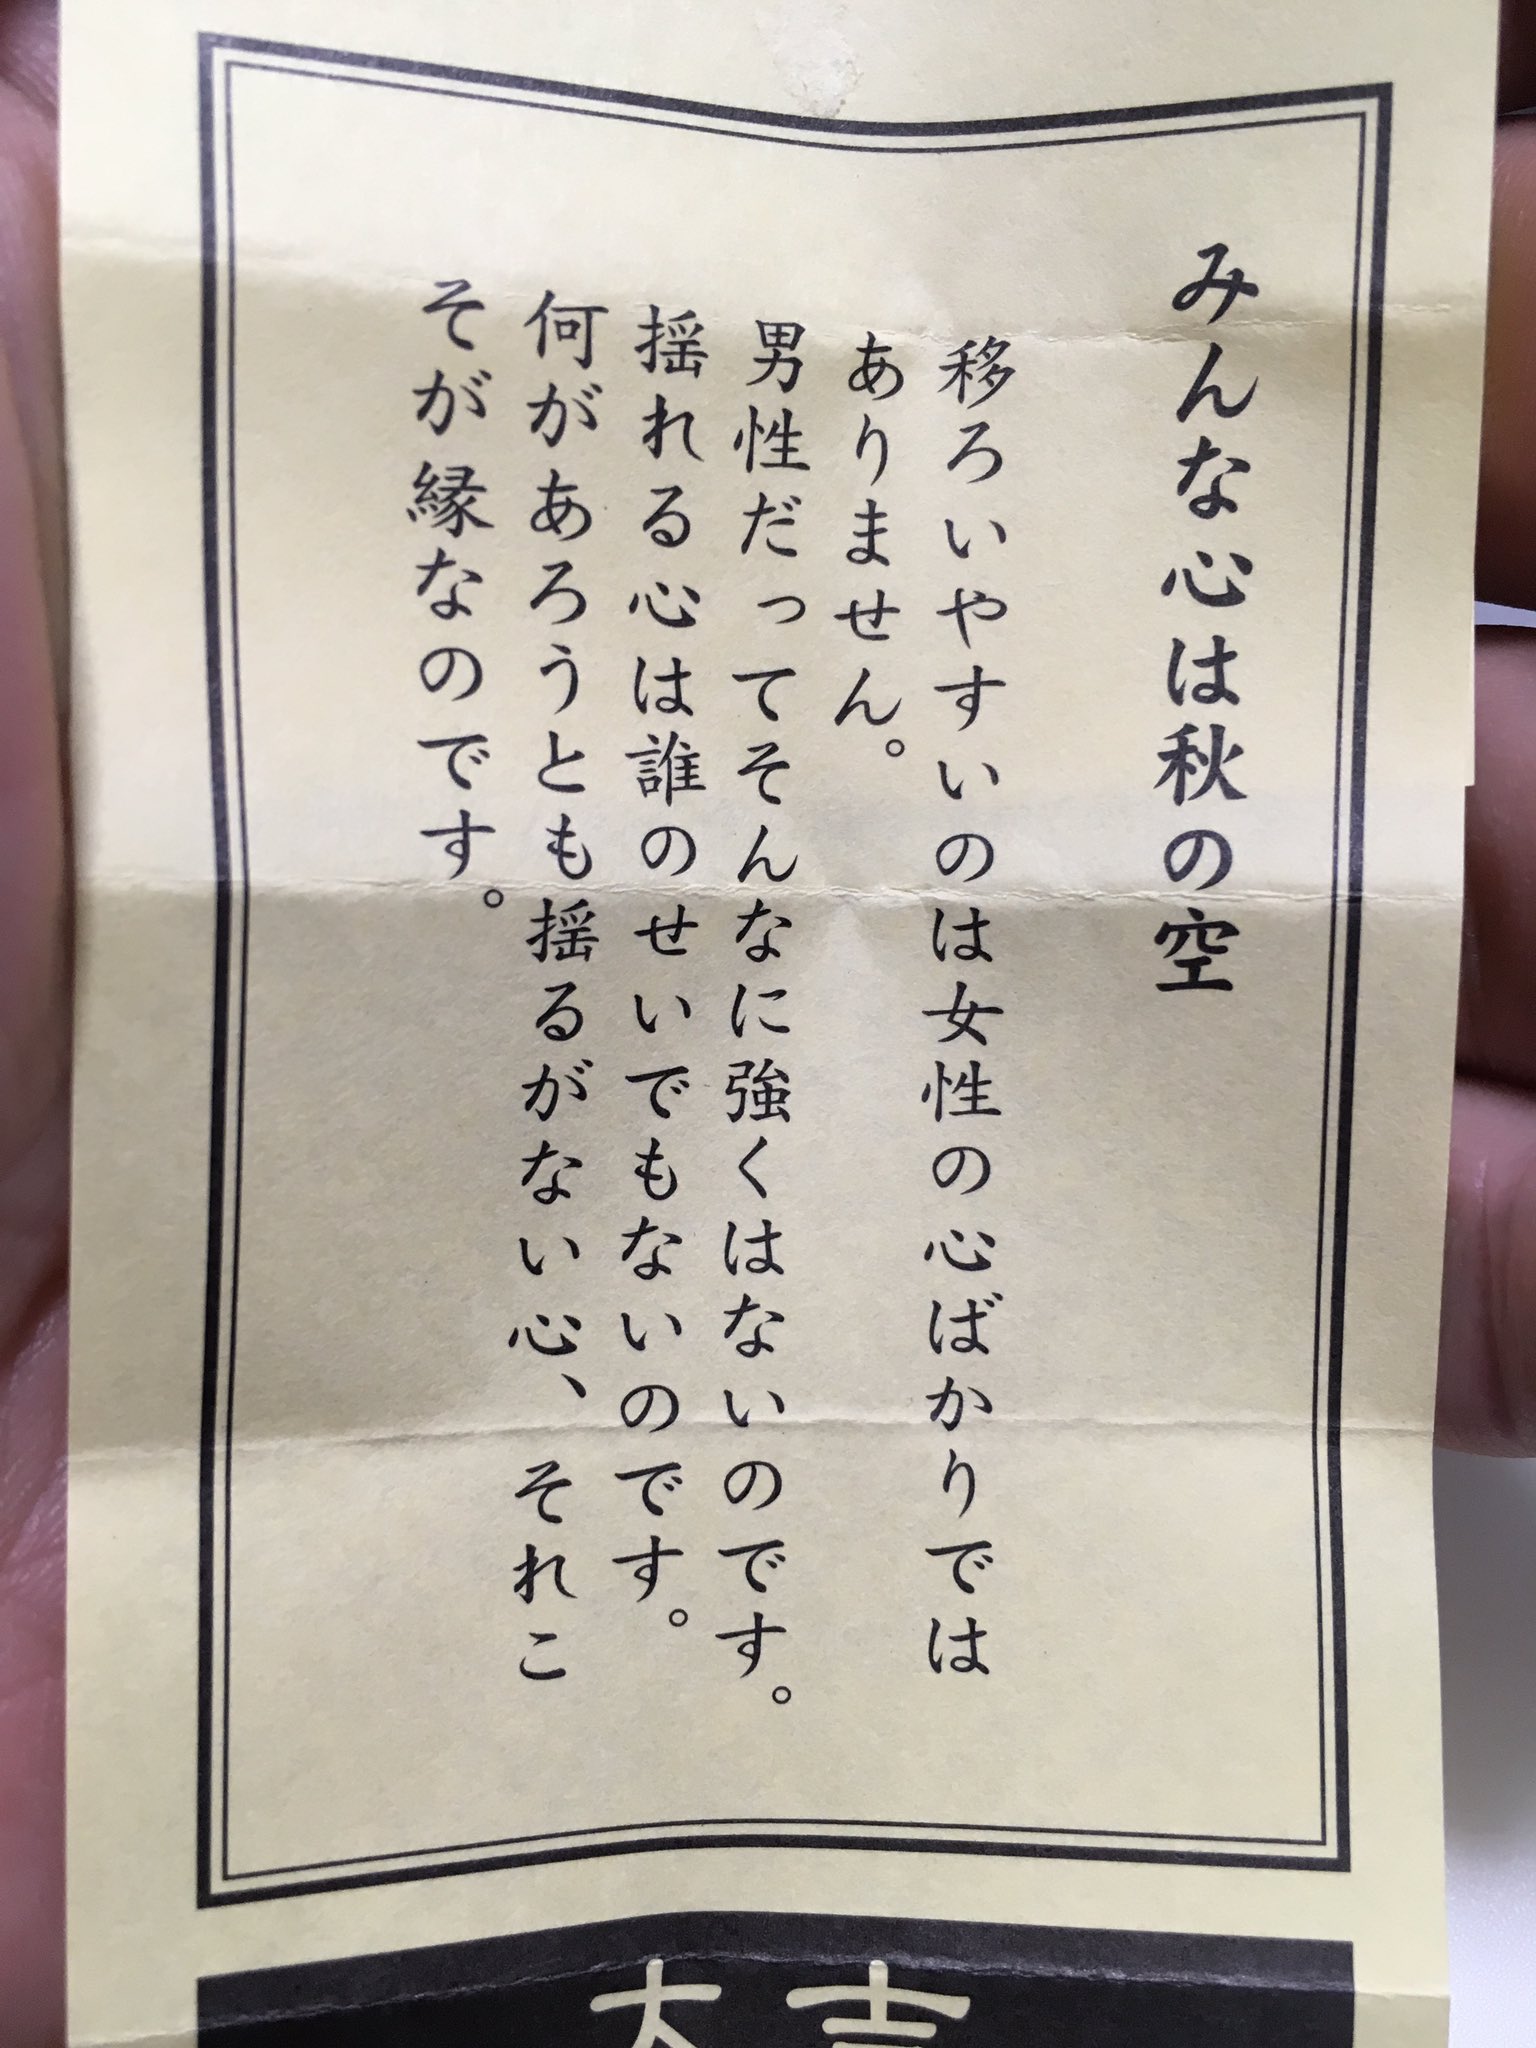 みんな心は秋の空
移ろいやすいのは女性の心ばかりでは
ありません。
男性だってそんなに強くはないのです。
揺れる心は誰のせいでもないのです。
何があろうとも揺るがない心、それこ
そが縁なのです。
大吉